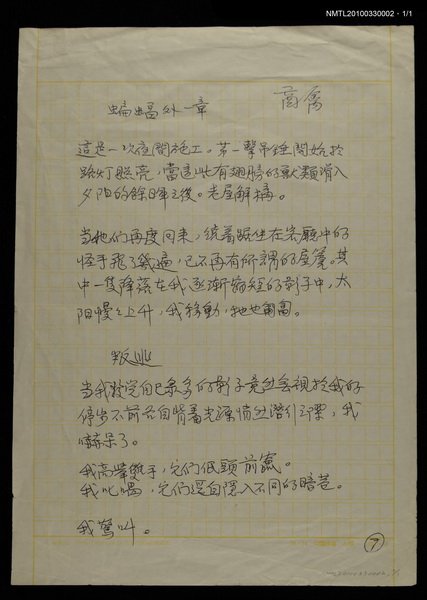 NMTL20100330002 - 1/1
蝙蝠外一章
商禽
這是一次夜間施工。第一擊吊錘開始於
路灯照亮,當這些有翅膀的獸類滑入
夕陽的餘暉之後。老屋解構。
當牠們再度回來,繞著踞坐在客廳中的
怪手飛了幾遍,已不再有所謂的屋簷。其
中一隻降落在我逐漸縮短的影子中,太
陽慢慢上升,我移動,牠也匍匐。
叛逃
當我發覺自己眾多的影子竟然無視於我的
停步不前各自背著光源悄然潛行之際,我
嚇呆了。
我高舉雙手,它們低頭前竄。
我叱喝,它們逕自隱入不同的暗巷。
我驚叫。
7